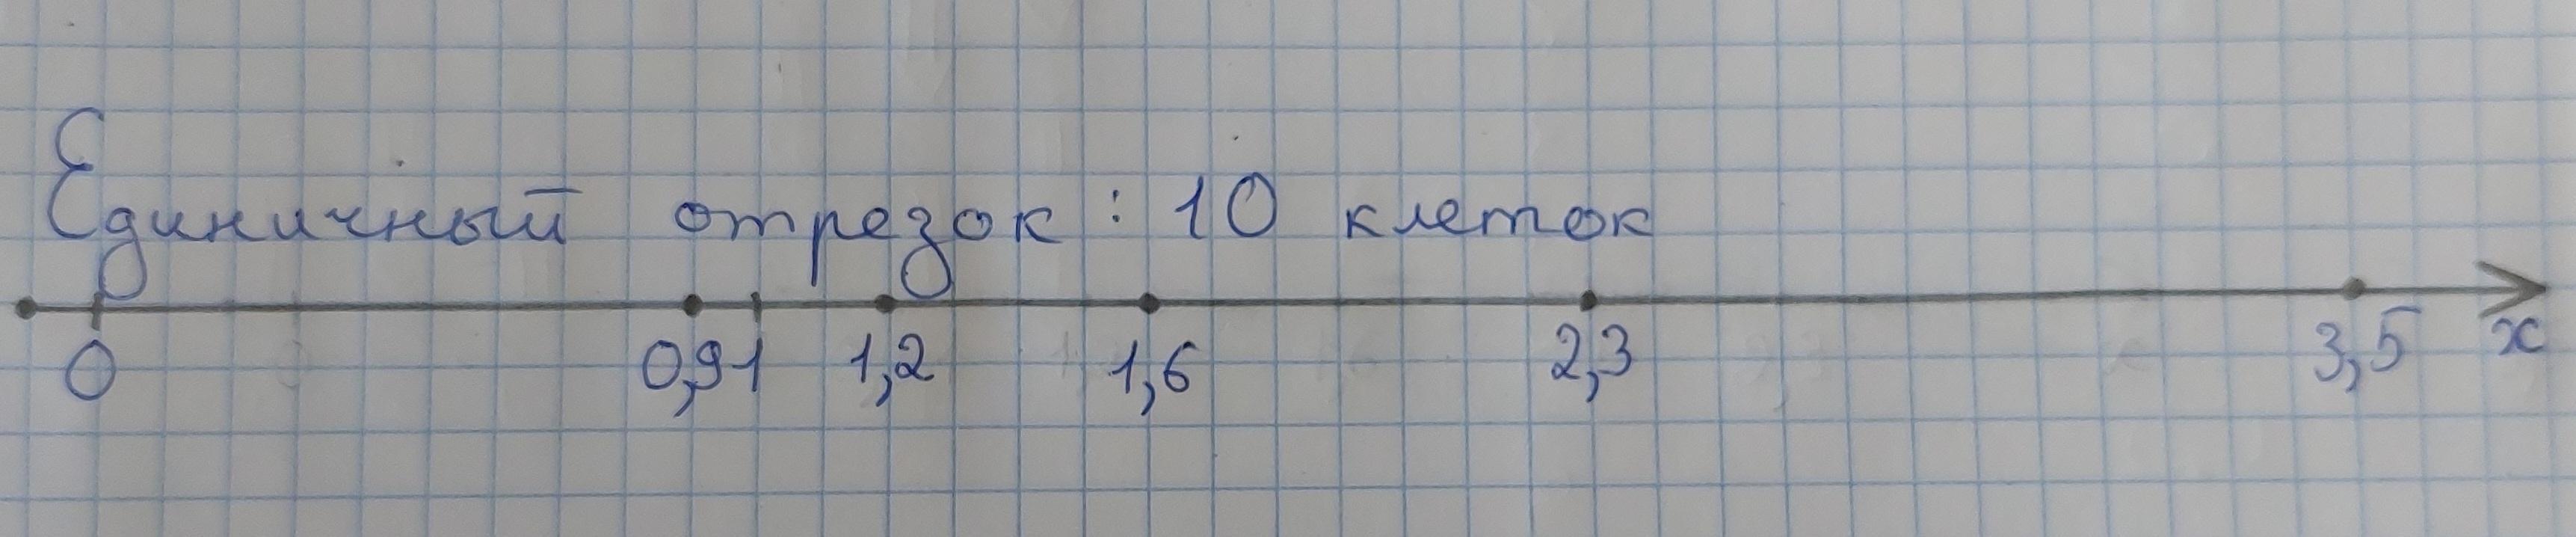 Единичный отрезок : 10 клеток
0 0,9 1 1,2 1,6 2,3 3,5 x